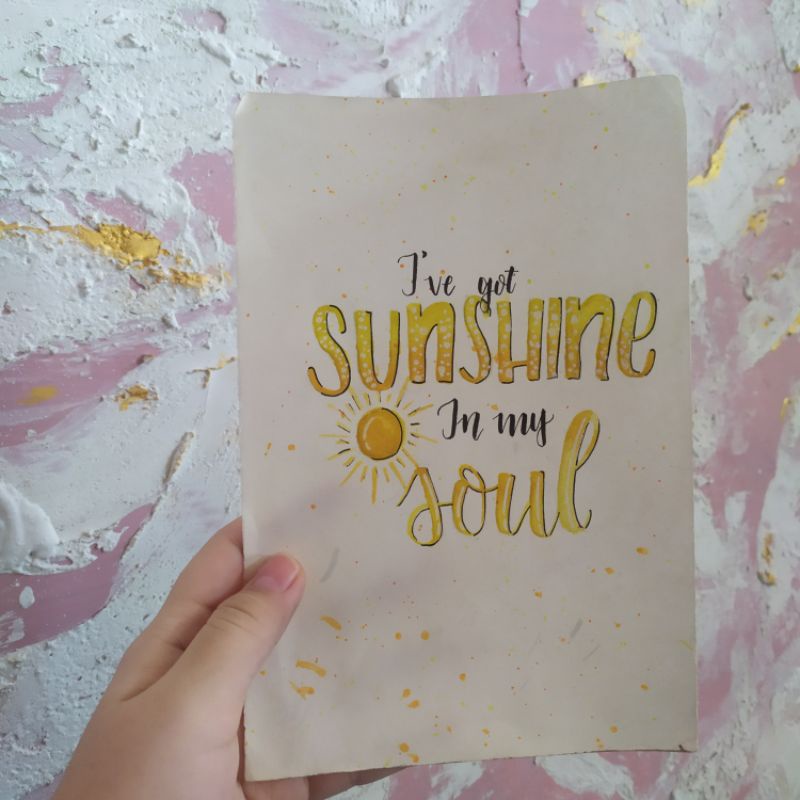 I've got
sunsHINE
In my
soul